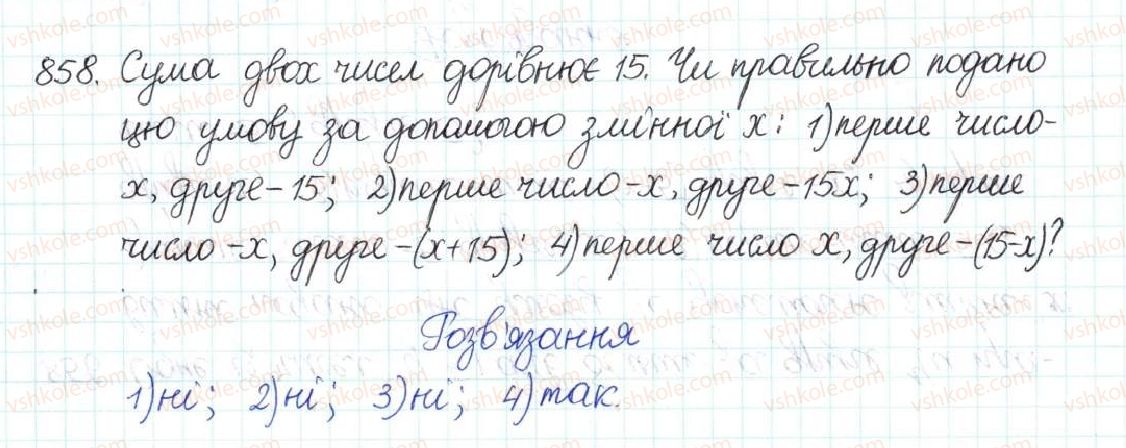 858. Сума двох чисел дорівнює 15. Чи правильно подано
цю умову за допомогою змінної x: 1) перше число-
x, друге-15; 2) перше число-x, друге-15x; 3) перше
число-x, друге-(x+15); 4) перше число x, друге-(15-x)?
Розв'язання
1) ні; 2) ні; 3) ні; 4) так.